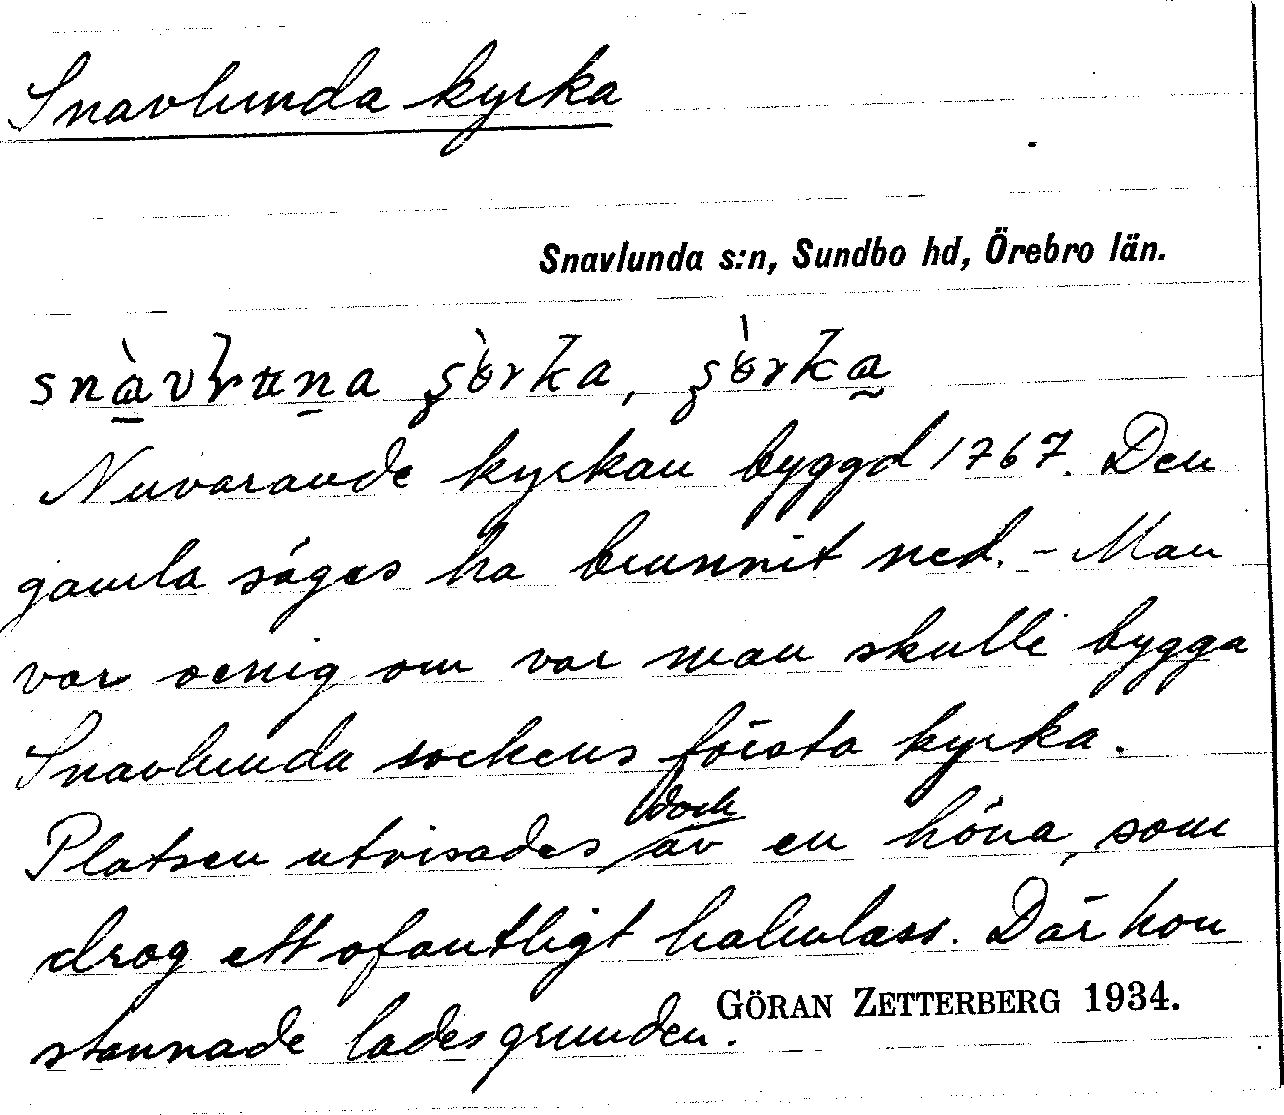 Snavlunda kyrka
Snavlunda s:n, Sundbo hd, Örebro län.
Nuvarande kyrkan byggd 1767. Den
gamla säges ha brunnit ned. - Man
var oenig om var man skulle bygga
Snavlunda sockens första kyrka.
Platsen utvisades dock av en höna, som
drog ett ofantligt halmlass. Där hon
stannade lades grunden.
GÖRAN ZETTERBERG 1934.